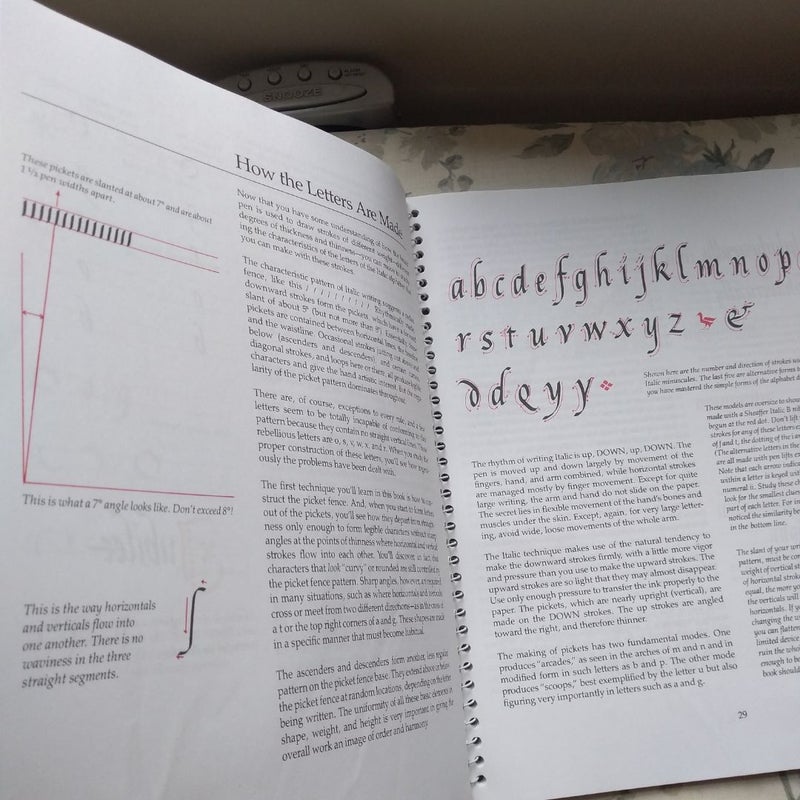 SNOOZE
These pickets are slanted at about 7° and are about
1 1/2 pen widths apart.
This is what a 7° angle looks like. Don't exceed 8°!
This is the way horizontals
and verticals flow into
one another. There is no
waviness in the three
straight segments.
How the Letters Are Made
Now that you have some understanding of how the
pen is used to draw strokes of different
degrees of thickness and thinness
ing the characteristics of the letters of the Italic
you can make with these strokes.
The characteristic pattern of Italic writing suggests a
fence, like this / / / / / / / / / /
downward strokes form the pickets, which have a
slant of about 5° (but not more than
pickets are contained between horizontal lines, the
and the waistline. Occasional strokes jutting out above and
below (ascenders and descenders), and certain
diagonal strokes, and loops here or there,
characters and give the hand artistic interest. But the
larity of the picket pattern dominates throughout.
There are, of course, exceptions to every rule, and a few
letters seem to be totally incapable of conforming to the
pattern because they contain no straight vertical lines. These
rebellious letters are o, s, v, w, x and z. When you study the
proper construction of these letters, you'll see how
ously the problems have been dealt with.
The first technique you'll learn in this book is how to con-
struct the picket fence. And, when you start to form letters
out of the pickets, you'll see how they depart from
ness only enough to form legible characters without
angles at the points of thinness where horizontal and vertical
strokes flow into each other. You'll discover, in fact, that
characters that look "curvy" or rounded are still controlled by
the picket fence pattern. Sharp angles, however, are required
in many situations, such as where horizontals and verticals
cross or meet from two different directions—as in the case of
a t or the top right corners of a and g. These shapes are made
in a specific manner that must become habitual.
The ascenders and descenders form another, less regular
pattern on the picket fence base. They extend above or below
the picket fence at random locations, depending on the letter
being written. The uniformity of all these basic elements in
shape, weight, and height is very important in giving the
overall work an image of order and harmony.
a b c d e f g h i j k l m n o p
r s t u v w x y z &
d d e y y
Shown here are the number and direction of strokes
Italic minuscules. The last five are alternative forms
you have mastered the simple forms of the alphabet
The rhythm of writing Italic is up, DOWN, up, DOWN. The
pen is moved up and down largely by movement of the
fingers, hand, and arm combined, while horizontal strokes
are managed mostly by finger movement. Except for quite
large writing, the arm and hand do not slide on the paper.
The secret lies in flexible movement of the hand's bones and
muscles under the skin. Except, again, for very large letter-
ing, avoid wide, loose movements of the whole arm.
The Italic technique makes use of the natural tendency to
make the downward strokes firmly, with a little more vigor
and pressure than you use to make the upward strokes. The
upward strokes are so light that they may almost disappear.
Use only enough pressure to transfer the ink properly to the
paper. The pickets, which are nearly upright (vertical), are
made on the DOWN strokes. The up strokes are angled
toward the right, and therefore thinner.
The making of pickets has two fundamental modes. One
produces "arcades," as seen in the arches of m and n and in
modified form in such letters as b and p. The other mode
produces "scoops," best exemplified by the letter u but also
figuring very importantly in letters such as a and g.
These models are oversize to
made with a Sheaffer Italic B
begin at the red dot. Don't lift
strokes for any of these letters
of j and t, the dotting of the i
(The alternative letters in the
are all made with pen lifts
Note that each arrow
within a letter is keyed
numeral ii. Study these
look for the smallest
part of each letter. For
noticed the similarity
in the bottom line.
The slant of your
pattern, must be
weight of vertical
of horizontal strokes
equal, the more
the verticals will
horizontals. If
changing the
you can flatten
limited device
ruin the whole
enough to be
book should
29